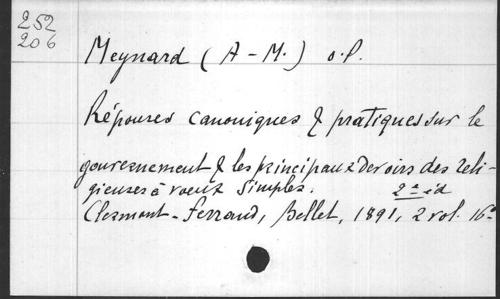 252
206
Meynard (A-M.) o.p.
Réponses canoniques & pratiques sur le
gouvernement & les principaux devoirs des reli-
gieuses à vœux simples. 2e éd
Clermont-Ferrand, Bellet, 1891, 2 vol. 16°